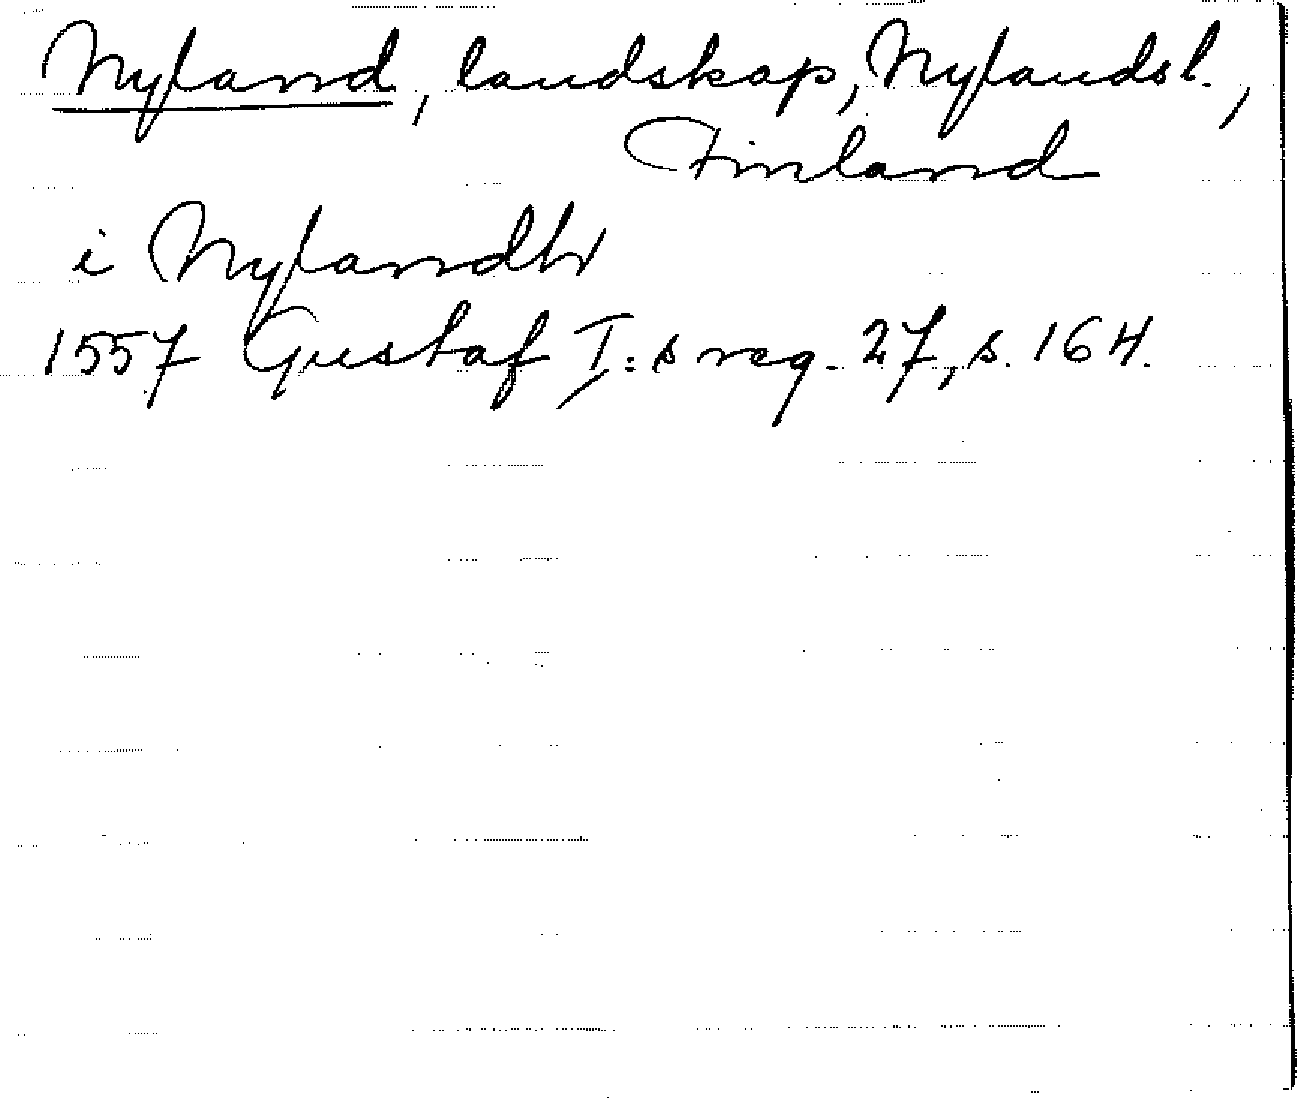 Nyland, landskap, Nylandsl.,
Finland
i Nylandh
1557 Gustaf I:s reg. 27, s. 164.